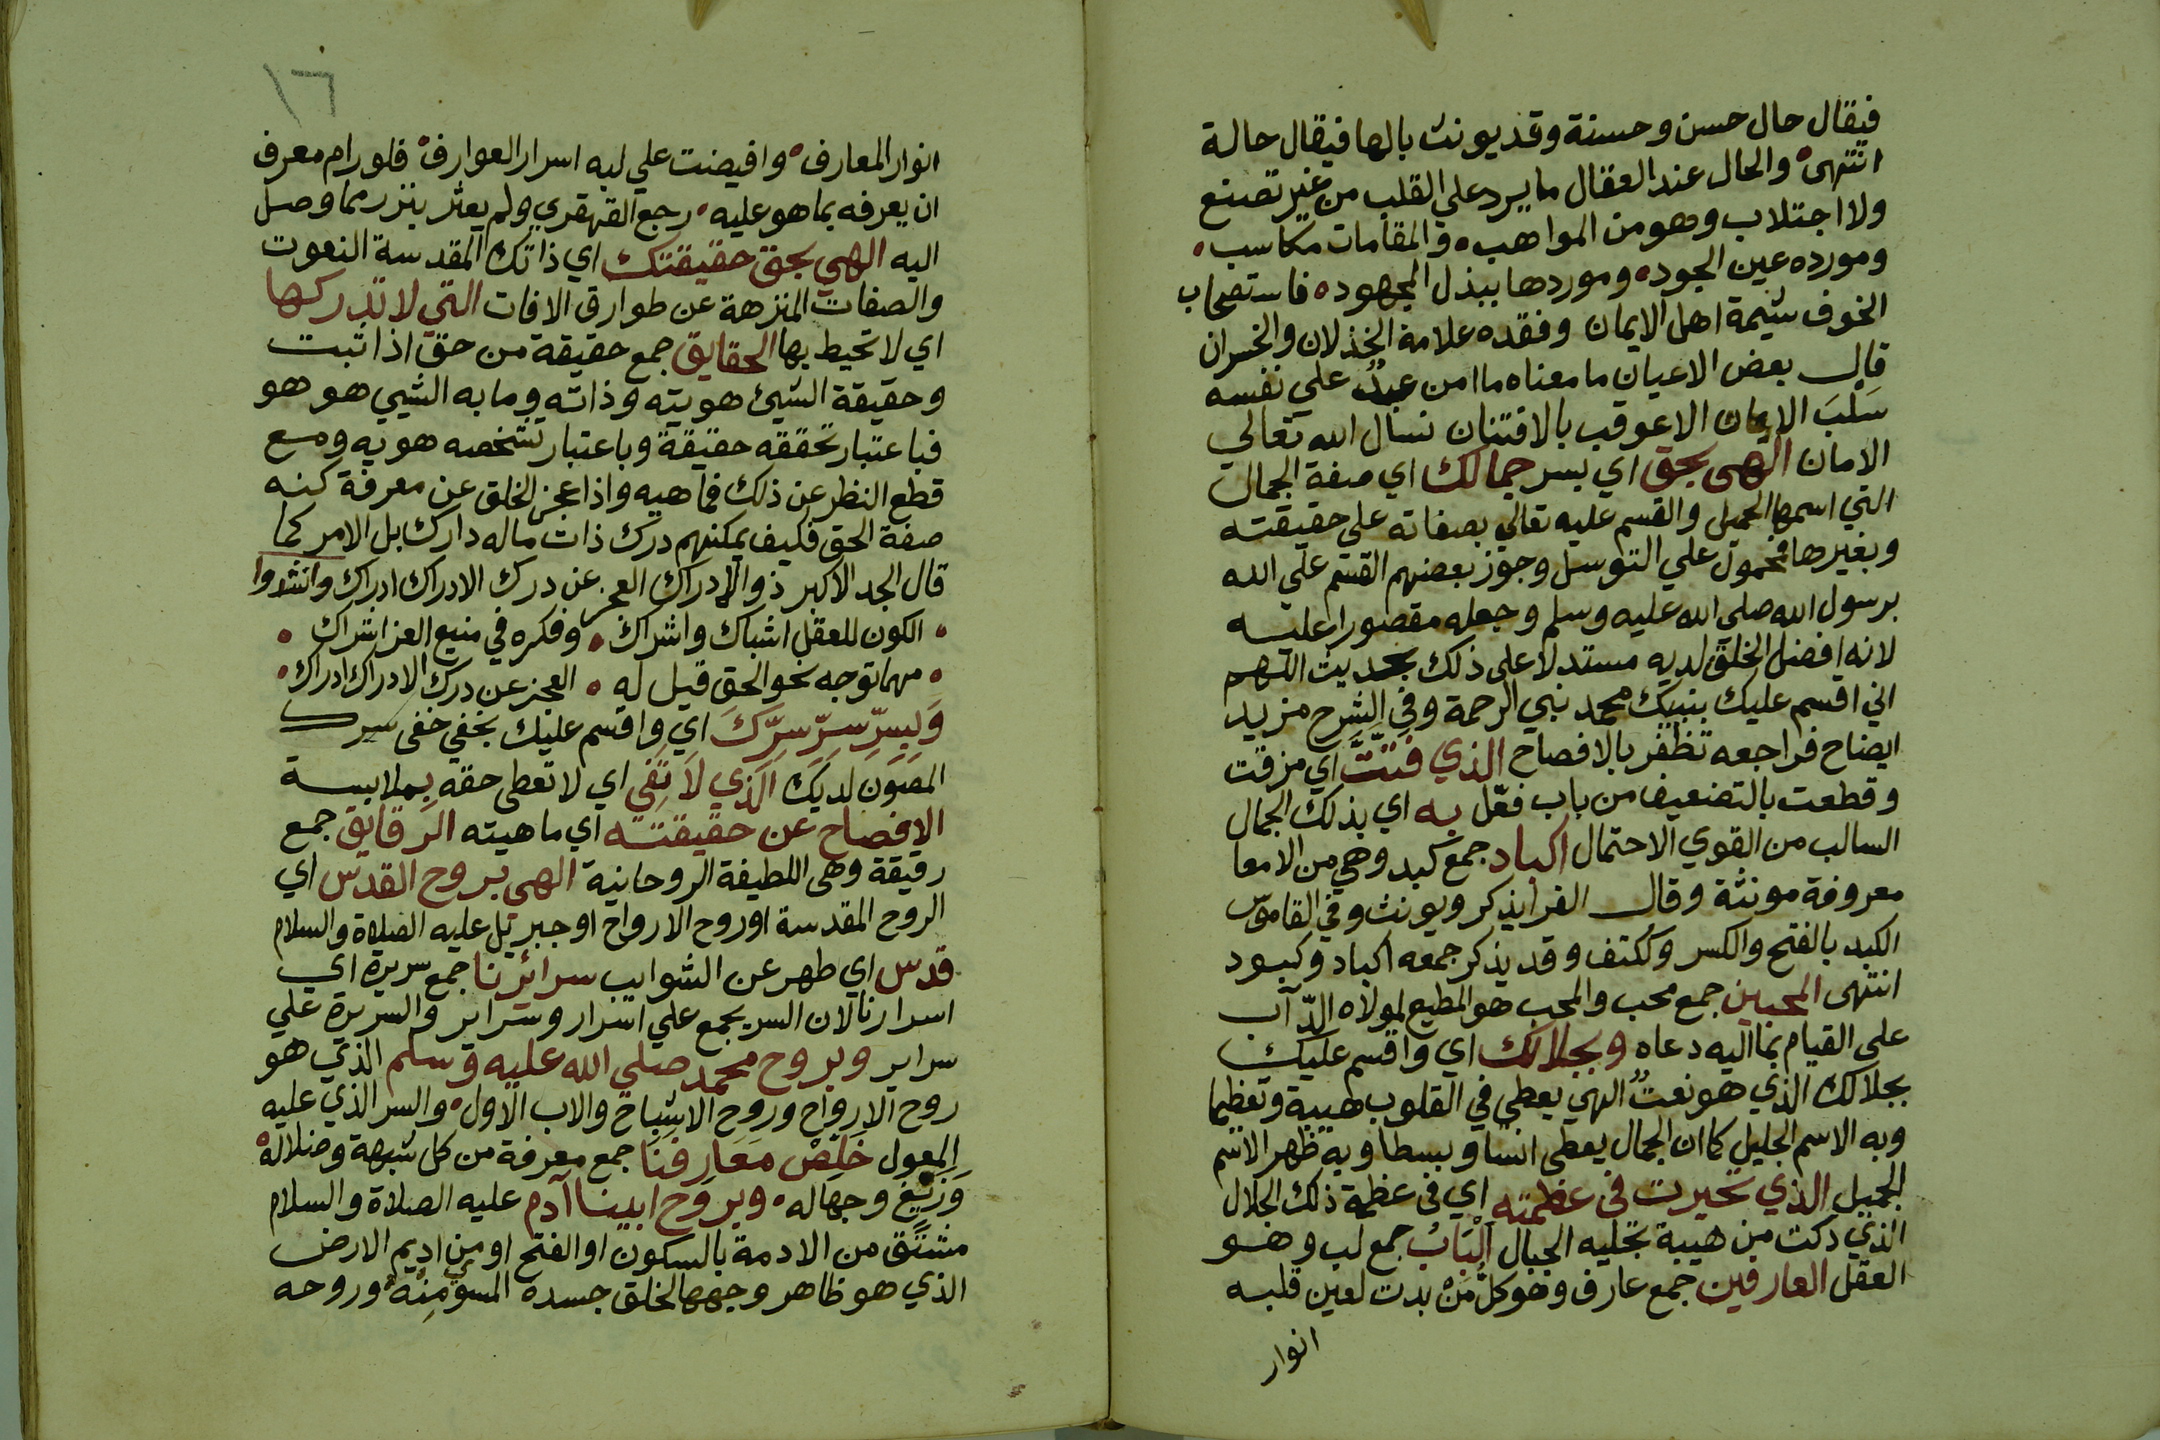 فيقال حال حسن وحسنة وقد يونث بالها فيقال حالة
انتهى والحال عند العقال ما يرد علي القلب من غير تصنع
ولا اجتلاب وهو من المواهب والمقامات مكاسب
ومورده عين الجود وموردها ببذل المجهود فاستصحاب
الخوف شيمة اهل الايمان وفقده علامة الخذلان والخسران
قال بعض الاعيان ما معناه ما امن عبدٌ علي نفسه
سَلْبَ الايمان الا عوقب بالافتنان نسأل الله تعالي
الامان الهي بحق اي بسر جمالك اي صفة الجمال
التي اسمها الجميل والقسم عليه تعالي بصفاته علي حقيقته
وبغيرها فمحمول علي التوسل وجوز بعضهم القسم علي الله
برسول الله صلي الله عليه وسلم وجعله مقصورا عليه
لانه افضل الخلق لديه مستدلا علي ذلك بحديث اللهم
اني اقسم عليك بنبيك محمد نبي الرحمة وفي الشرح مزيد
ايضاح فراجعه تظفر بالافصاح الذي فتّتَ اي مزقت
وقطعت بالتضعيف من باب فعّل به اي بذلك الجمال
السالب من القوي الاحتمال اكباد جمع كبد وهي من الامعا
معروفة مونثة وقال الفرا يذكر ويونث وفي القاموس
الكبد بالفتح والكسر وككتف وقد يذكر جمعه اكباد وكبود
انتهى المحبين جمع محب والمحب هو المطيع لمولاه الدّآب
علي القيام بما اليه دعاه وبجلالك اي واقسم عليك
بجلالك الذي هو نعتٌ الهي يعطي في القلوب هيبة وتعظيما
وبه الاسم الجليل كما ان الجمال يعطي انسا وبسطا وبه ظهر الاسم
الجميل الذي تحيرت في عظمته اي في عظمة ذلك الجلال
الذي دكت من هيبة تجليه الجبال اَلْبَابُ جمع لب وهو
العقل العارفين جمع عارف وهو كلُّ مَنْ بدت لعين قلبه
انوار
١٦
انوار المعارف وافيضت علي لبه اسرار العوارف فلو رام معرف
ان يعرفه بما هو عليه رجع القهقري ولم يعثر بنزر مما وصل
اليه الهي بحق حقيقتك اي ذاتك المقدسة النعوت
والصفات المنزهة عن طوارق الافات التي لا تدركها
اي لا تحيط بها الحقايق جمع حقيقة من حق اذا ثبت
وحقيقة الشيئ هويته وذاته وما به الشيي هو هو
فباعتبار تحققه حقيقة وباعتبار تشخصه هويه ومع
قطع النظر عن ذلك فماهيه واذا عجز الخلق عن معرفة كنه
صفة الحق فكيف يمكنهم درك ذات ماله دارك بل الامر كما
قال الجد الاكبر ذو الادراك العجز عن درك الادراك ادراك وانشدوا
الكون للعقل اشباك واشراك وفكره في منيع العز اشراك
مهما توجه نحو الحق قيل له العجز عن درك الادراك ادراك
وَبِسِرِّ سِرِّ سِرِّكَ اي واقسم عليك بخفي خفى سرك
المصون لديك اَلَّذِي لاَ تَفِي اي لا تعطي حقه بملابسة
الافصاح عن حقيقته اي ماهيته الرقايق جمع
رقيقة وهى اللطيفة الروحانية الهى بروح القدس اي
الروح المقدسة او روح الارواح او جبريل عليه الصلاة والسلام
قدس اي طهر عن الشوايب سرائرنا جمع سريرة اي
اسرارنا لان السر يجمع علي اسرار وسراير والسريرة علي
سراير وبروح محمد صلي الله عليه وسلم الذي هو
روح الارواح وروح الاشباح والاب الاول والسر الذي عليه
المعول خَلِّصْ مَعَارِفَنَا جمع معرفة من كل شبهة وضلاله
وزيغ وجهاله وبروح ابينا آدم عليه الصلاة والسلام
مشتق من الادمة بالسكون او الفتح او من اديم الارض
الذي هو ظاهر وجهها لخلق جسده المسوي مِنْهُ وروحه